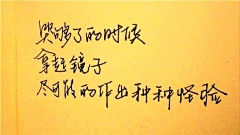 哭够了的时候
拿起镜子
尽可能的作出种种怪脸